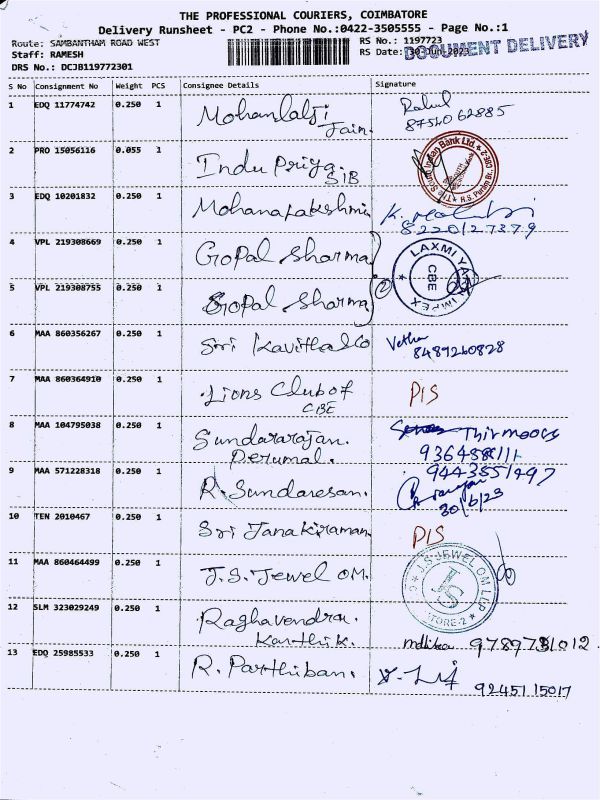 THE PROFESSIONAL COURIERS, COIMBATORE
Delivery Runsheet - PC2 - Phone No.:0422-3505555 - Page No.:1
Route: SAMBANTHAM ROAD WEST
Staff: RAMESH
DRS No.: DCJB119772301
RS No.: 1197723
RS Date: 30-Jun-2023
DOCUMENT DELIVERY
S No Consignment No Weight PCS Consignee Details Signature
1 EDQ 11774742 0.250 1 Mohanlalji Jain. Rahul
8754062885
2 PRO 15056116 0.055 1 Indu Priya.
SIB
The South Indian Bank Ltd.
3 EDQ 10201832 0.250 1 Mohanalakshmi K.
8220127379
4 VPL 219308669 0.250 1 Gopal Sharma
LAXMI
CBE
IMPEX
5 VPL 219308755 0.250 1 Gopal Sharma 2
6 MAA 860356267 0.250 1 Sri Kavitha &Co
8489260828
7 MAA 860364910 0.250 1 Lions Club of
CBE
P/S
8 MAA 104795038 0.250 1 Sundararajan.
Perumal.
9 MAA 571228318 0.250 1 R. Sundaresan.
9443551497
30/6/23
10 TEN 2010467 0.250 1 Sri Janakiraman P/S
11 MAA 860464499 0.250 1 J.S. Jewel OM.
J.S JEWEL OM LLP
STORE-2
12 SLM 323029249 0.250 1 Raghavendra.
Karthik.
13 EDQ 25985533 0.250 1 R. Parthiban.
9245115017